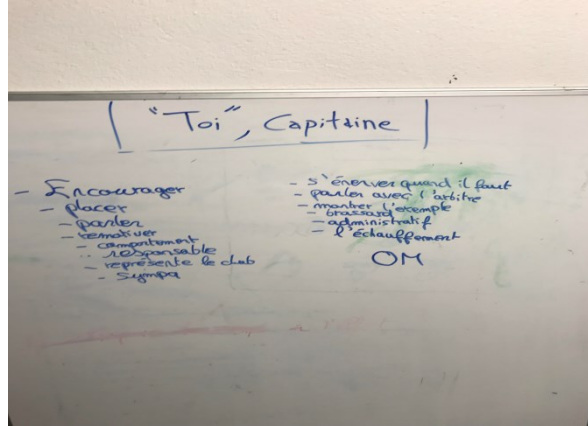 "Toi", Capitaine
- Encourager
- placer
- parler
- remotiver
- comportement
responsable
- représente le club
- sympa
- s'énerver quand il faut
- parler avec l'arbitre
- montrer l'exemple
- brassard
- administratif
- l'échauffement
OM